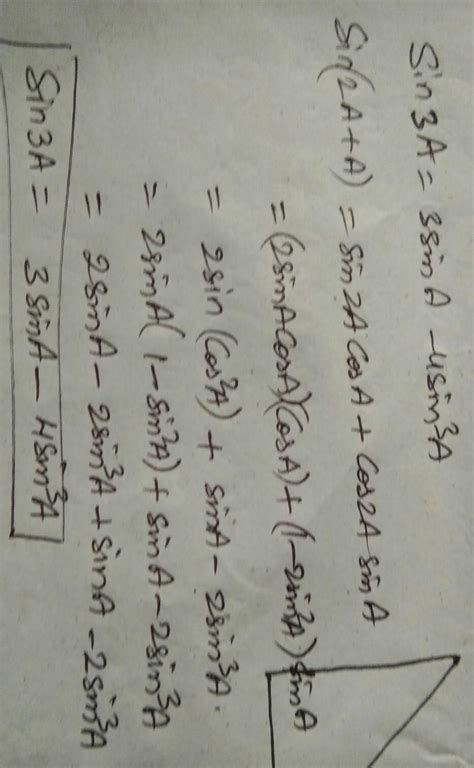 Sin3A = 3sinA - 4sin³A
Sin(2A+A) = sin2A cosA + cos2A sinA
= (2sinA cosA)(cosA) + (1-2sin²A) sinA
= 2sin (cos²A) + sinA - 2sin³A.
= 2sinA (1-sin²A) + sinA - 2sin³A
= 2sinA - 2sin³A + sinA - 2sin³A
Sin3A = 3sinA - 4sin³A